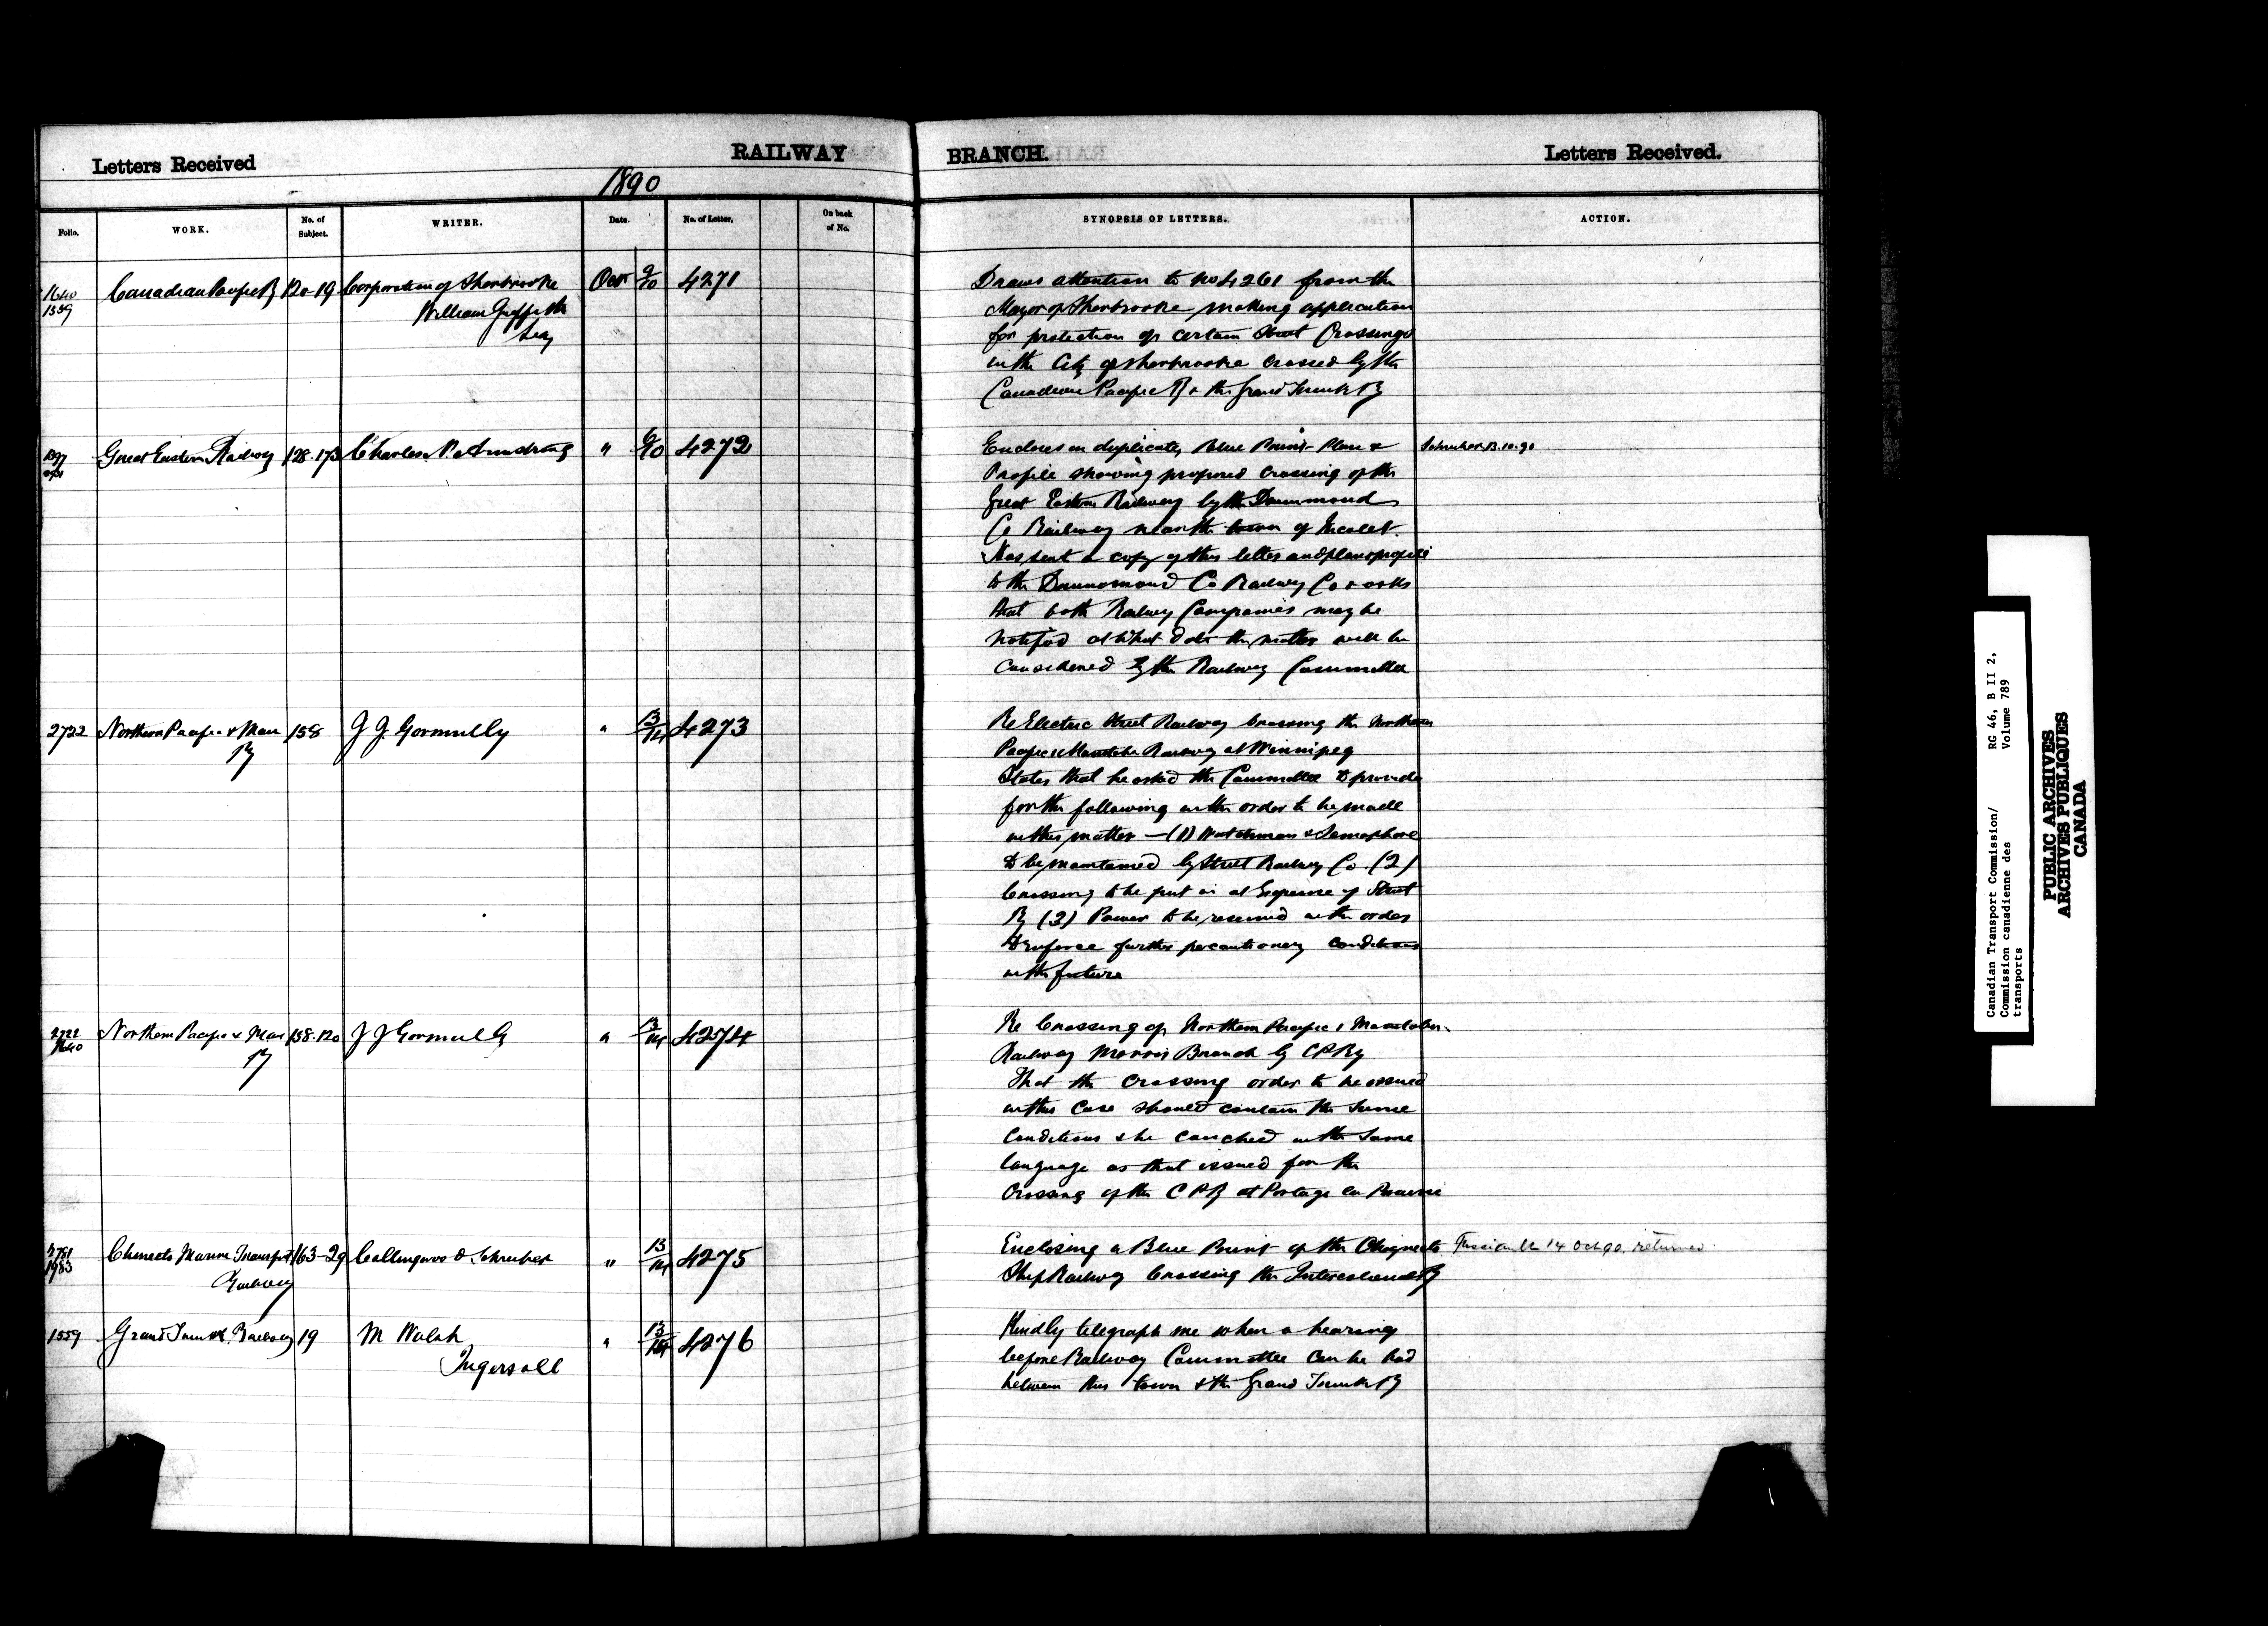 Letters Received
RAILWAY BRANCH.
Letters Received.
1890
Folio. WORK. No. of Subject. WRITER. Date. No. of Letter. On back of No. SYNOPSIS OF LETTERS. ACTION.
1640
1559
Canadian Pacific Ry 120-19 Corporation of Sherbrooke Oct 9/10 4271
William Griffith
Secy
Draws attention to No 4261 from the
Mayor of Sherbrooke making application
for protection of certain Street Crossings
in the City of Sherbrooke crossed by the
Canadian Pacific Ry & the Grand Trunk Ry
Great Eastern Railway 128-173 Charles N Armstrong " 4272
Encloses in duplicate, Blue Print Plan &
Profile showing proposed crossing of the
Great Eastern Railway by the Drummond
Co Railway near the town of Nicolet.
Has sent a copy of this letter and plan & profile
to the Drummond Co Railway Co & asks
that both Railway Companies may be
notified at what date the matter will be
considered by the Railway Committee
Schreiber 13.10.90
2722 Northern Pacific & Man 158 J J Gormully " 13/14 4273
Ry
Re Electric Street Railway crossing the Northern
Pacific & Manitoba Railway at Winnipeg
States that he asked the Committee to provide
for the following in the order to be made
in this matter — (1) Watchman & Semaphore
to be maintained by Street Railway Co (2)
Crossing to be put in at Expense of Street
Ry (3) Power to be reserved in the order
to enforce further precautionary conditions
in the future
2722
1640
Northern Pacific & Man 158-120 J J Gormully " 13/14 4274
Ry
Re Crossing of Northern Pacific & Manitoba
Railway Morris Branch by CPRy
That the crossing order to be issued
in this case should contain the same
conditions & be couched in the same
language as that issued for the
crossing of the CPR at Portage la Prairie
2781
1983
Chignecto Marine Transport 163-29 Collingwood Schreiber " 13/14 4275
Railway
Enclosing a Blue Print of the Chignecto
Ship Railway Crossing the Intercolonial Ry
14 Oct 90. returned
1559 Grand Trunk Railway 19 M Walsh " 13/14 4276
Ingersoll
Kindly telegraph me when a hearing
before Railway Committee can be had
between this town & the Grand Trunk Ry
Canadian Transport Commission/
Commission canadienne des
transports
RG 46, B II 2,
Volume 789
PUBLIC ARCHIVES
ARCHIVES PUBLIQUES
CANADA